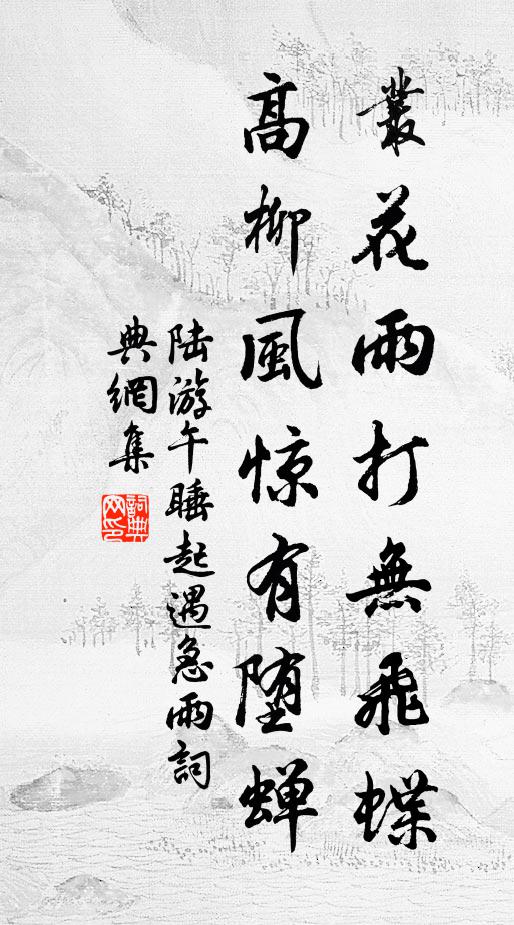 叢花雨打無飛蝶
高柳風惊有堕蝉
陆游午睡起遇急雨詞
典網集
詞典
网印